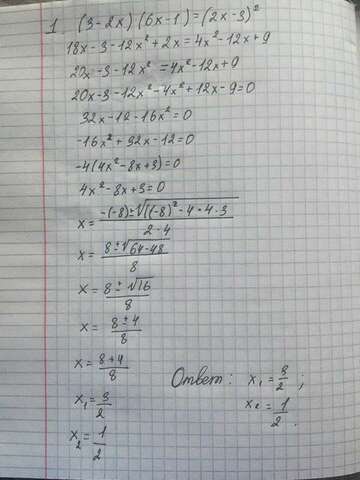 1. (3-2x)(6x-1)=(2x-3)²
18x-3-12x²+2x=4x²-12x+9
20x-3-12x²=4x²-12x+9
20x-3-12x²-4x²+12x-9=0
32x-12-16x²=0
-16x²+32x-12=0
-4(4x²-8x+3)=0
4x²-8x+3=0
x=(-(-8)±√((-8)²-4·4·3))/(2·4)
x=(8±√(64-48))/8
x=(8±√16)/8
x=(8±4)/8
x=(8+4)/8
x₁=3/2
x₂=1/2
Ответ: x₁=3/2;
x₂=1/2.